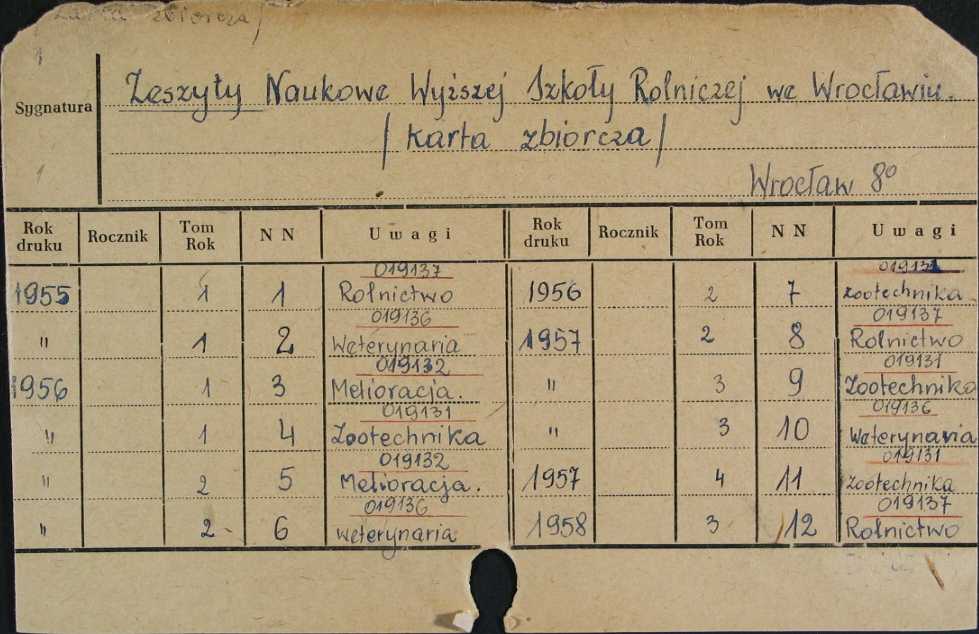 Karta zbiorcza/
Sygnatura
Zeszyty Naukowe Wyższej Szkoły Rolniczej we Wrocławiu.
/karta zbiorcza/
Wrocław 8°
Rok druku Rocznik Tom Rok N N Uwagi Rok druku Rocznik Tom Rok N N Uwagi
019137 019131
1955 1 1 Rolnictwo 1956 2 7 Zootechnika.
019136 019137
" 1 2 Weterynaria 1957 2 8 Rolnictwo
019132 019131
1956 1 3 Melioracja. " 3 9 Zootechnika
019131 019136
" 1 4 Zootechnika " 3 10 Weterynaria
019132 019131
" 2 5 Melioracja. 1957 4 11 Zootechnika
019136 019137
" 2 6 weterynaria 1958 3 12 Rolnictwo